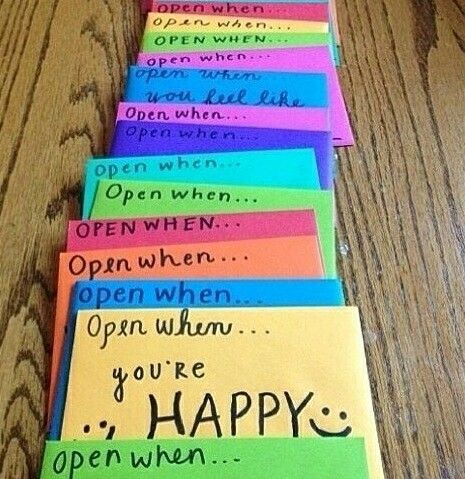 open when...
open when...
OPEN WHEN...
open when...
open when
you feel like
Open when...
Open when...
open when...
Open when...
OPEN WHEN...
Open when...
Open when...
Open when...
you're
HAPPY
Open when...